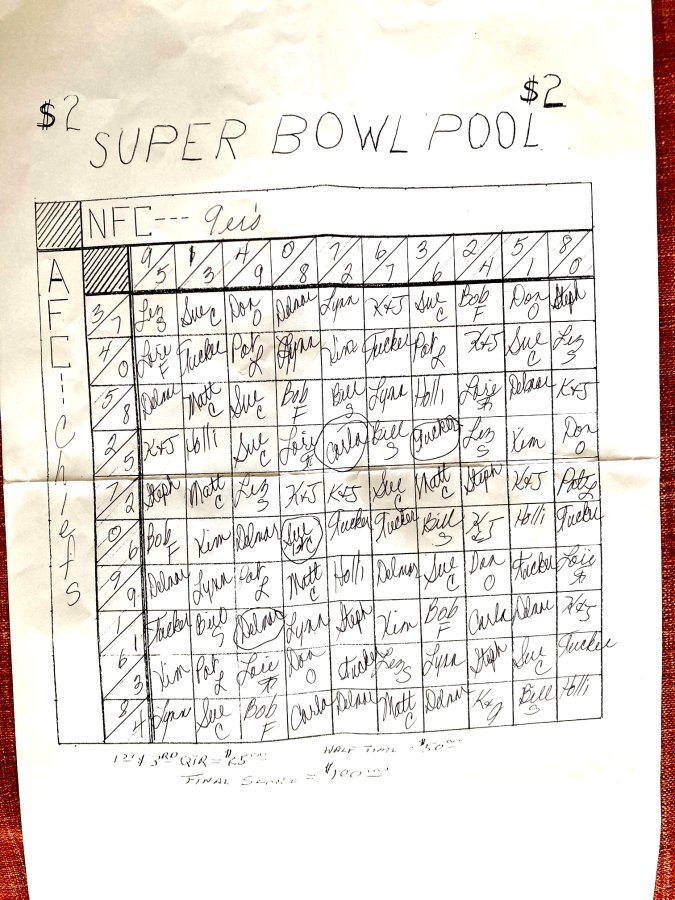 $2 $2
SUPER BOWL POOL
NFC--- 9er's
AFC--- Chiefs
9/5 1/3 4/9 0/8 7/2 6/7 3/6 2/4 5/1 8/0
3/7 Lez S Sue C Don O Delmar Lynn K+J Sue C Bob F Don O Steph
4/0 Lorie F Tucker Pat L Lynn Kim Tucker Pat L K+J Sue C Lez S
5/8 Delmar Matt C Sue C Bob F Bill S Lynn Holli Lorie F Delmar K+J
2/5 K+J Holli Sue C Lorie F Carla Bill S Tucker Lez S Kim Don O
7/2 Steph Matt C Lez S K+J K+J Sue C Matt C Steph K+J Pat L
0/6 Bob F Kim Delmar Sue C Tucker Tucker Bill S K+J Holli Tucker
9/9 Delmar Lynn Pat L Matt C Holli Delmar Sue C Don O Tucker Lorie F
1/1 Tucker Bill S Delmar Lynn Steph Kim Bob F Carla Delmar K+J
6/3 Kim Pat L Lorie F Don O Tucker Lez S Lynn Steph Sue C Tucker
8/4 Lynn Sue C Bob F Carla Delmar Matt C Delmar K+J Bill S Holli
1ST & 3RD QTR = $25.00 HALF TIME - $50.00
FINAL SCORE = $100.00